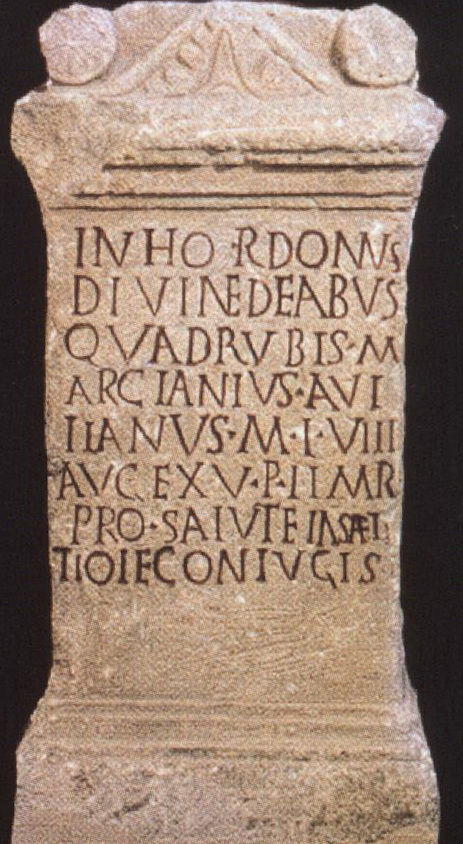 INHO·RDONVS
DIVINEDEABVS
QVADRVBIS·M
ARCIANIVS·AVI
IIANVS·M·I·VIII
AVGEXV·P·IIMR
PRO·SAIVTEINSÆT
TIOIECONIVGIS